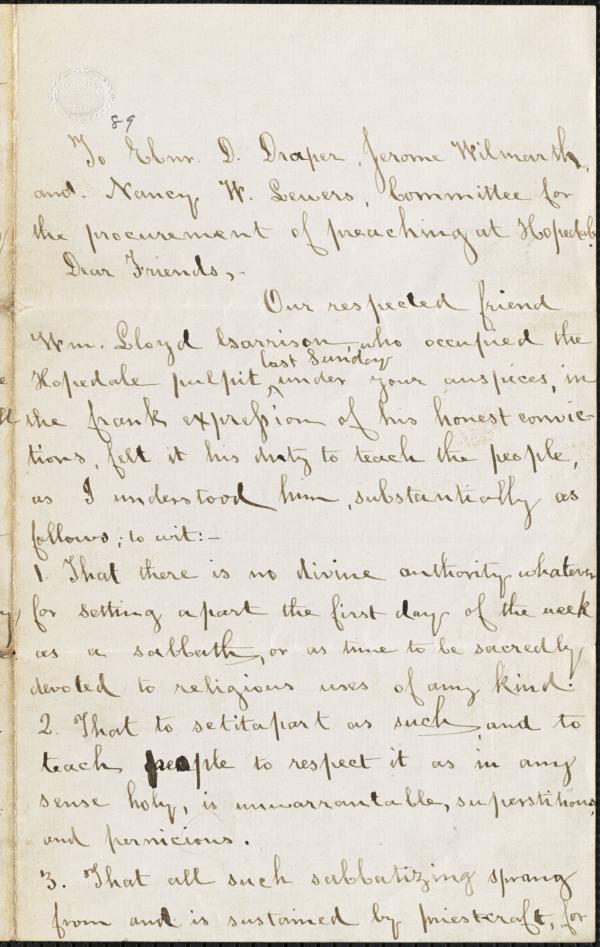 89
To Ebnr. D. Draper, Jerome Wilmarth,
and Nancy W. Lewers, Committee for
the procurement of preaching at Hopedale
Dear Friends,-
Our respected friend
Wm. Lloyd Garrison, who occupied the
last Sunday
Hopedale pulpit ^ under your auspices, in
the frank expression of his honest convic-
tions, felt it his duty to teach the people,
as I understood him, substantially as
follows; to wit:-
1. That there is no divine authority whatever
for setting apart the first day of the week
as a sabbath, or as time to be sacredly
devoted to religious uses of any kind.
2. That to set it apart as such, and to
teach people to respect it as in any
sense holy, is unwarrantable, superstitious,
and pernicious.
3. That all such sabbatizing sprang
from and is sustained by priestcraft, for